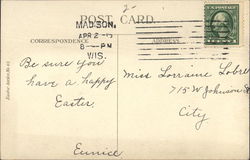 2-
POST CARD.
MADISON,
APR 2
8-PM
WIS.
CORRESPONDENCE
ADDRESS
Be sure you
have a happy
Easter.
Eunice
Miss Lorraine
715 W Johnson
City